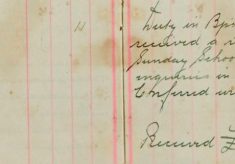 11
Duty in B
received a
Sunday School
enquiries in
Conferred w
Received £